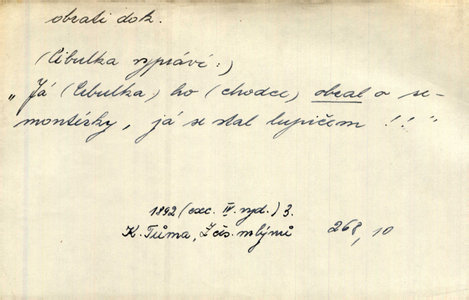 obrati dok.
(Cibulka vypráví:)
„Já (Cibulka) ho (chodce) obral o se-
montézky, já se stal lupičem !! "
1892 (exc. IV. vyd.) 3.
K. Tůma, Z čes. mlýnů 268, 10